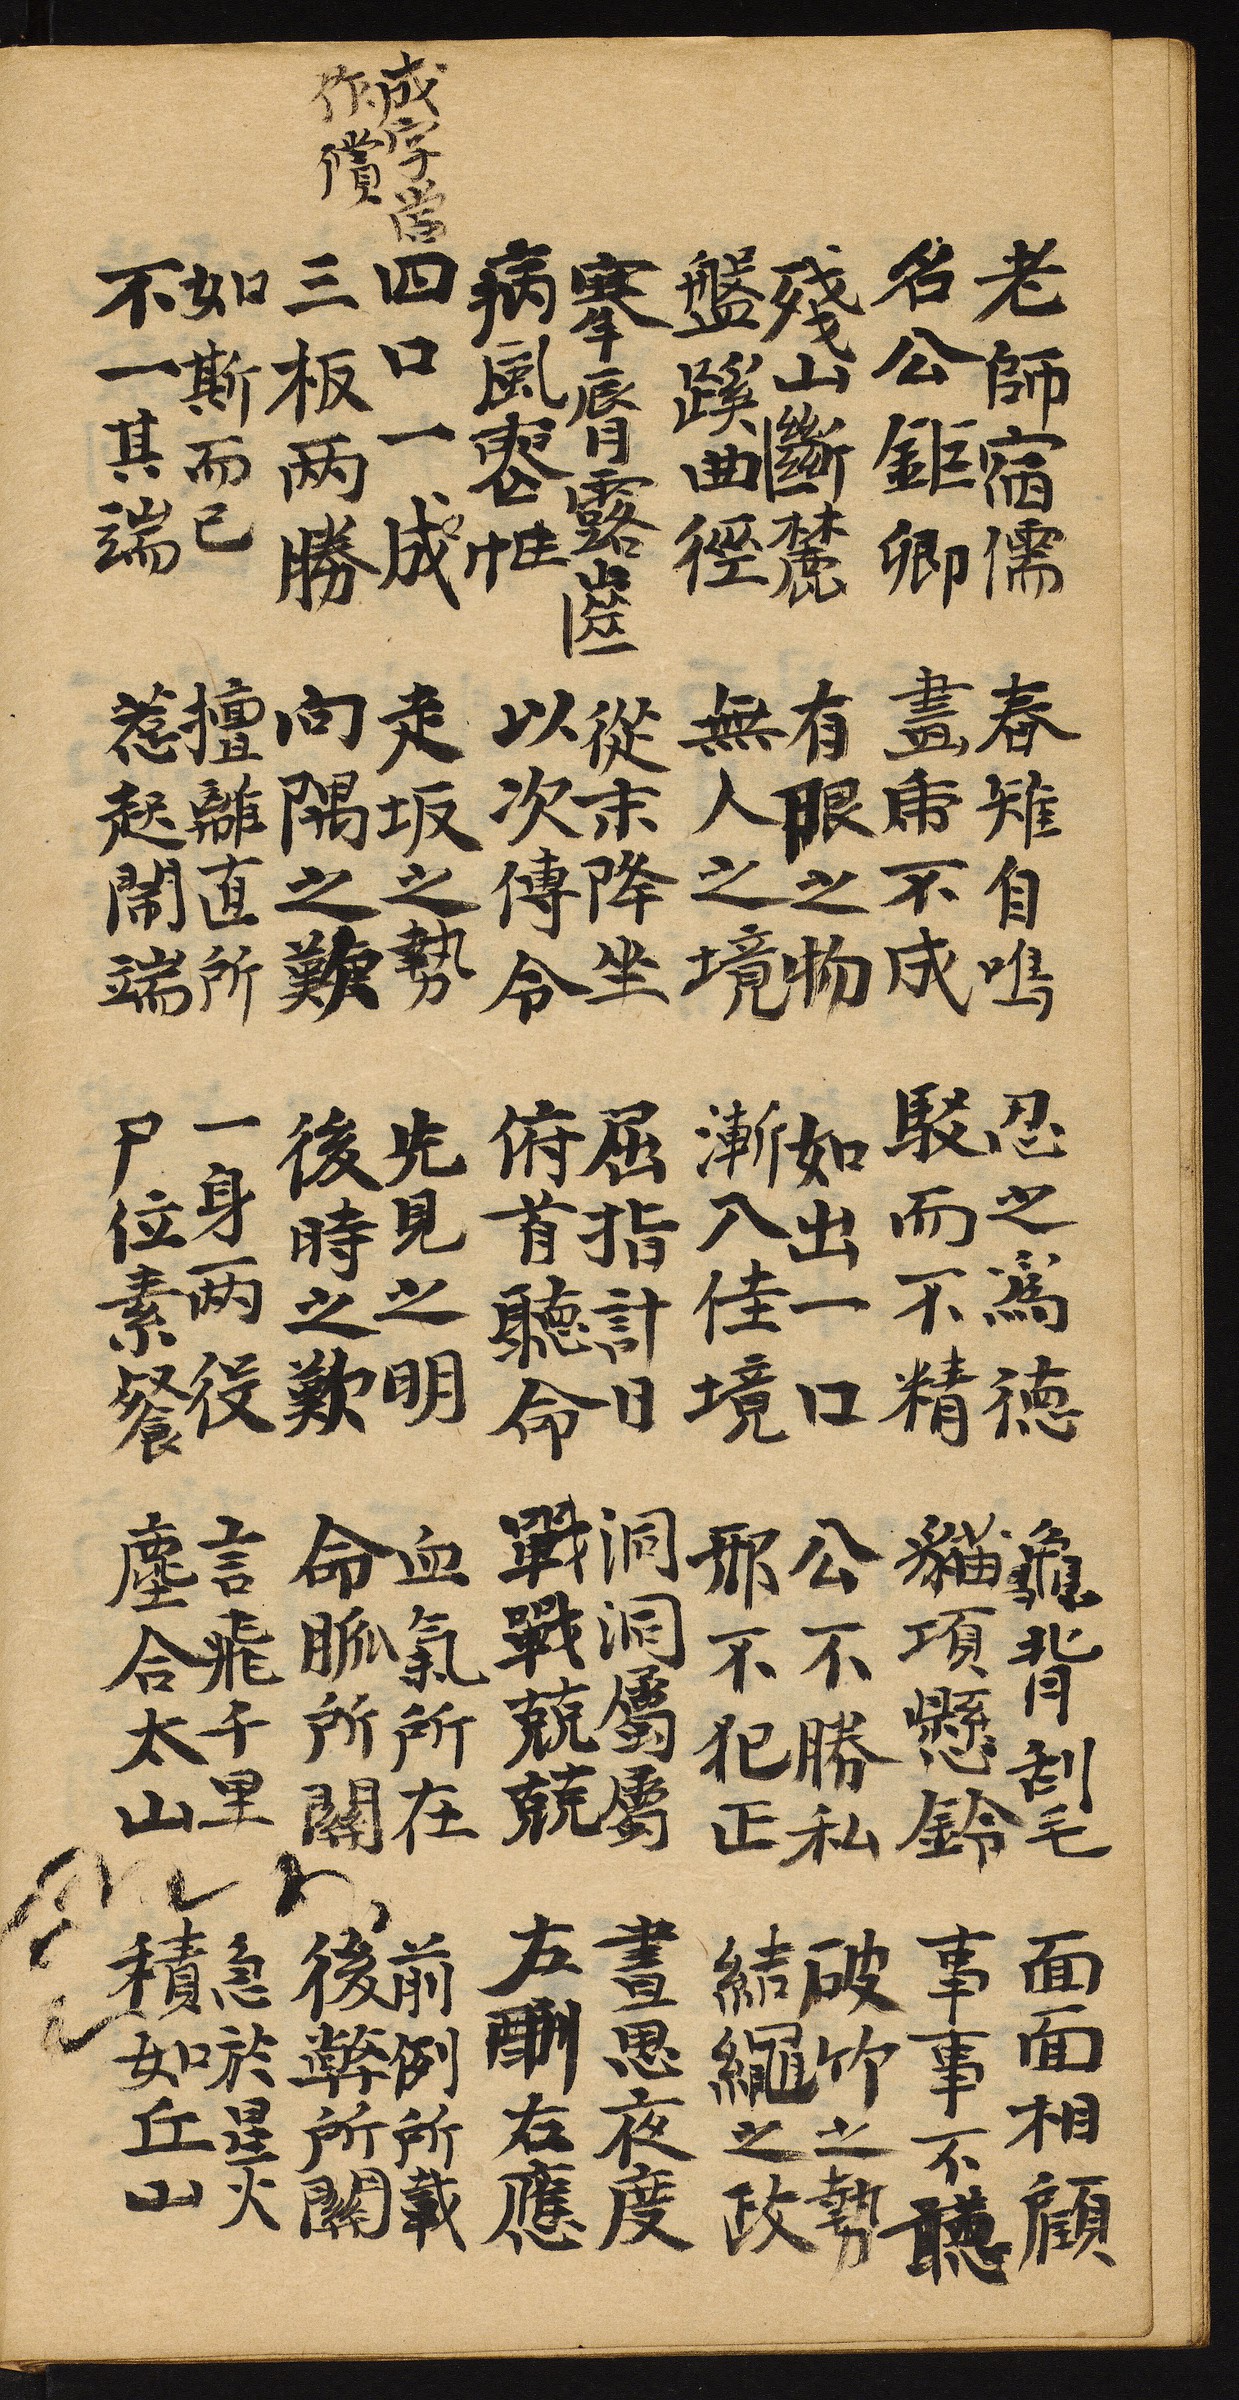 成字當
作償
老師宿儒 春雉自鳴 忍之爲德 龜背刮毛 面面相顧
名公鉅卿 畫虎不成 駁而不精 貓項懸鈴 事事不聽
殘山斷麓 有眼之物 如出一口 公不勝私 破竹之勢
盤蹊曲徑 無人之境 漸入佳境 邪不犯正 結繩之政
搴脣露齒 從末降坐 屈指計日 洞洞屬屬 晝思夜度
病風 以次傳令 俯首聽命 戰戰兢兢 左酬右應
四口一成 走坂之勢 先見之明 血氣所在 前例所載
三板两勝 向隅之歎 後時之歎 命脈所關 後弊所關
如斯而已 擅離直所 一身两役 言飛千里 急於星火
不一其端 惹起鬧端 尸位素餐 塵合太山 積如丘山